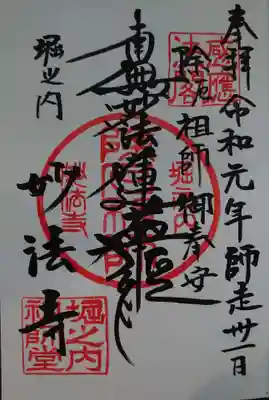 奉拝 令和元年師走卅一日
除厄祖師御奉安
南無妙法蓮華経
堀之内
妙法寺
堀之内
妙法寺
堀之内
祖師堂